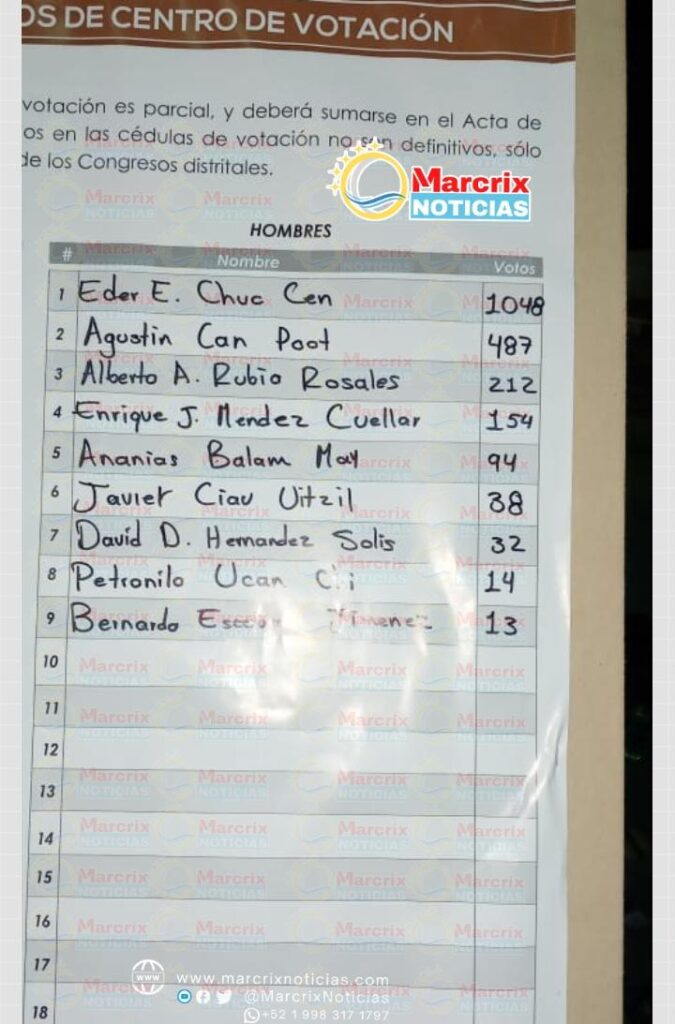 OS DE CENTRO DE VOTACIÓN
votación es parcial, y deberá sumarse en el Acta de
os en las cédulas de votación no son definitivos, sólo
de los Congresos distritales.
Marcrix
NOTICIAS
HOMBRES
# Nombre Votos
1 Eder E. Chuc Cen 1048
2 Agustin Can Poot 487
3 Alberto A. Rubio Rosales 212
4 Enrique J. Mendez Cuellar 154
5 Ananias Balam May 94
6 Javier Ciau Uitzil 38
7 David D. Hernandez Solis 32
8 Petronilo Ucan 14
9 Bernardo Jimenez 13
10
11
12
13
14
15
16
17
18
www.marcrixnoticias.com
@MarcrixNoticias
+52 1 998 317 1797